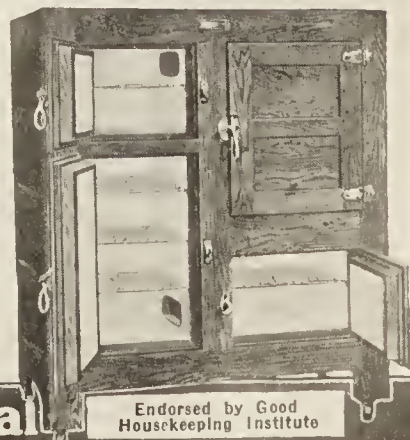 al
Endorsed by Good
Housekeeping Institute